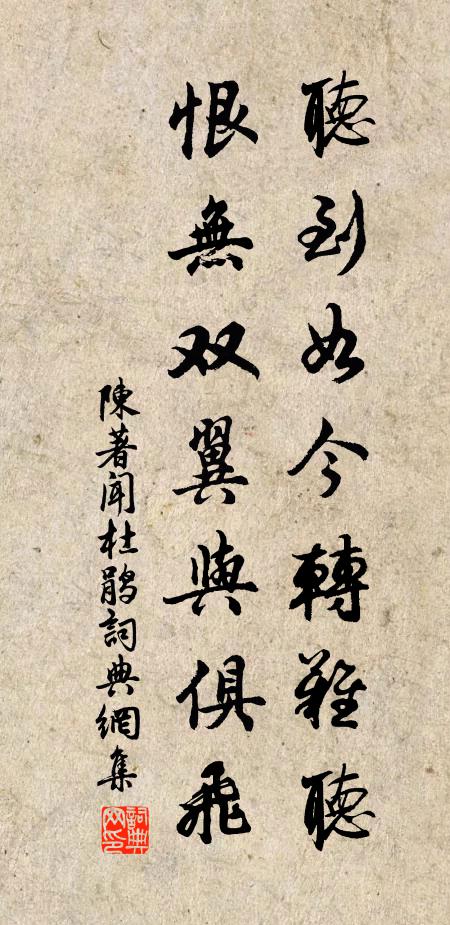 聽到如今轉難聽
恨無双翼與俱飛
陳著闻杜鹃詞典網集
詞典网印